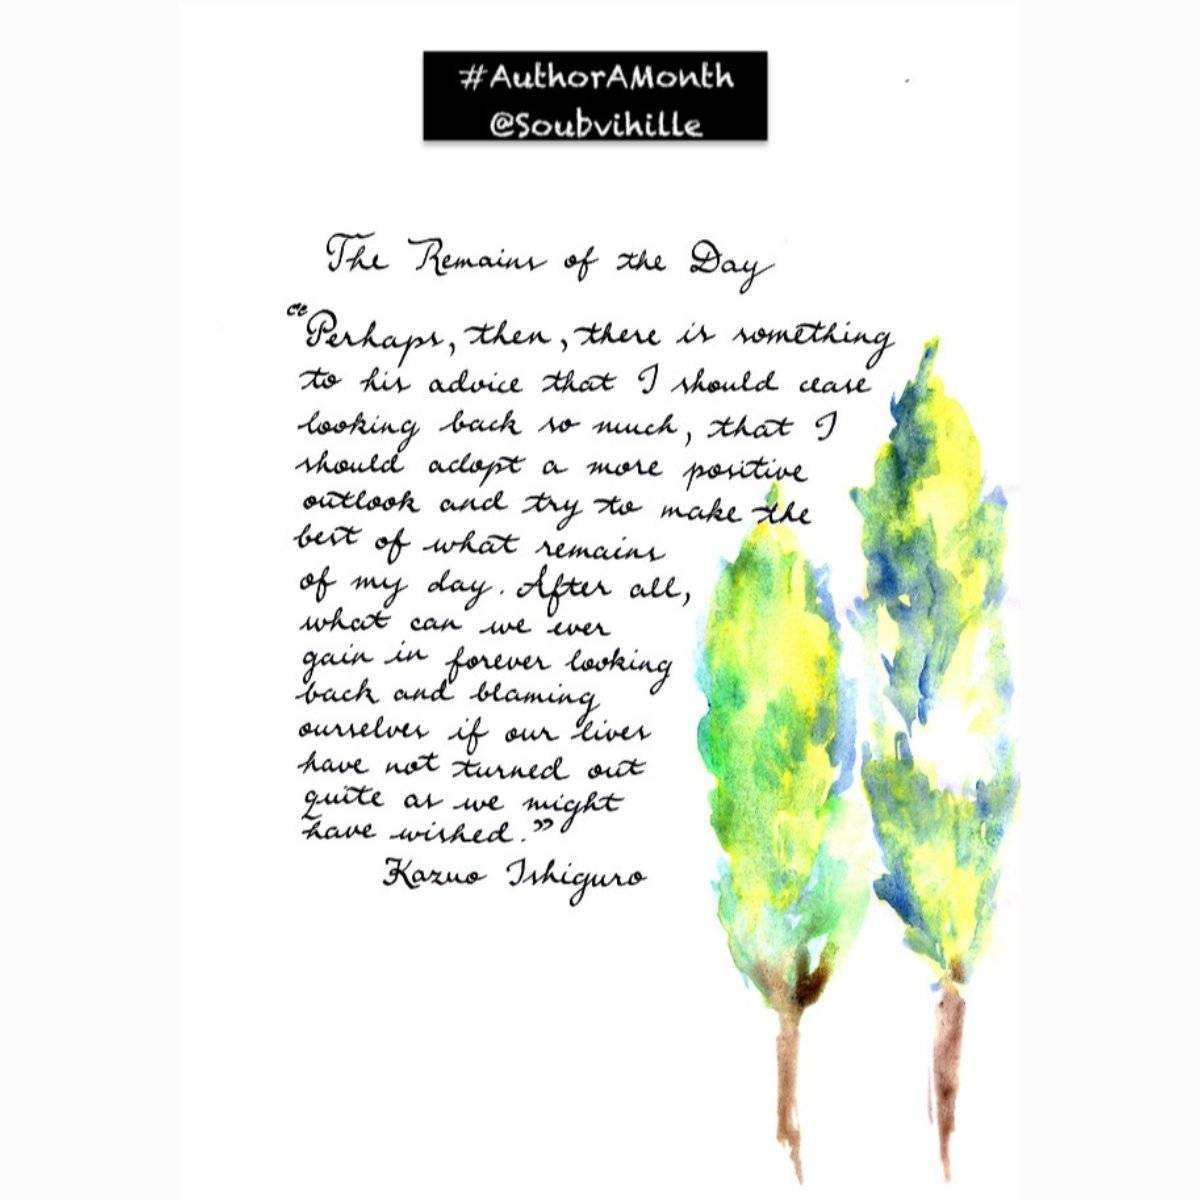 #AuthorAMonth
@Soubvihille
The Remains of the Day
“Perhaps, then, there is something
to his advice that I should cease
looking back so much, that I
should adopt a more positive
outlook and try to make the
best of what remains
of my day. After all,
what can we ever
gain in forever looking
back and blaming
ourselves if our lives
have not turned out
quite as we might
have wished.”
Kazuo Ishiguro